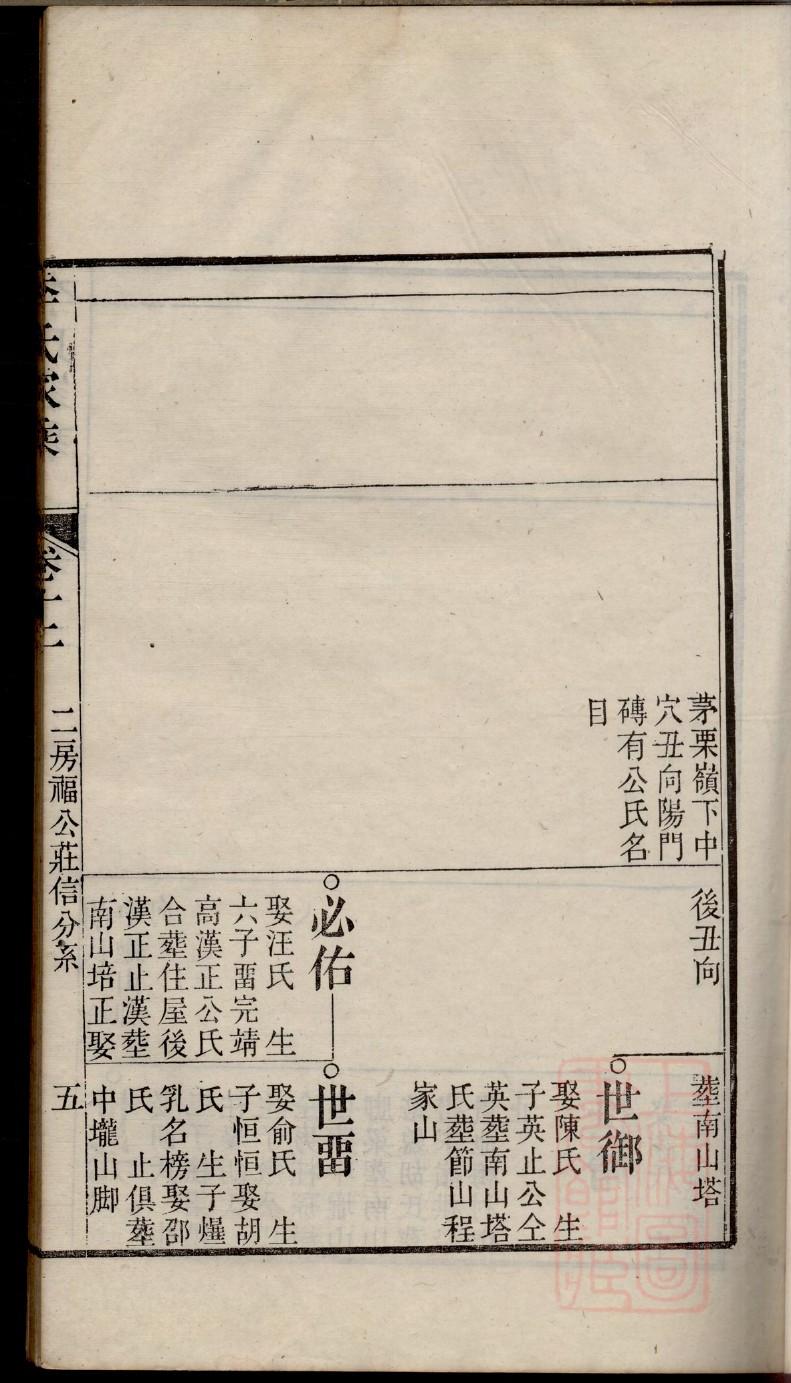 茅栗嶺下中
穴丑向陽門
磚有公氏名
目
後丑向
○必佑
娶汪氏　生
六子畱完靖
高漢正公氏
合塟住屋後
漢正止漢塟
南山培正娶
塟南山塔
○世御
娶陳氏　生
子英止公仝
英塟南山塔
氏塟節山程
家山
○世畱
娶俞氏　生
子恒恒娶胡
氏　生子爗
乳名榜娶邵
氏　止俱塟
中壠山脚
李氏家乘
卷十二
二房福公莊信分系
五